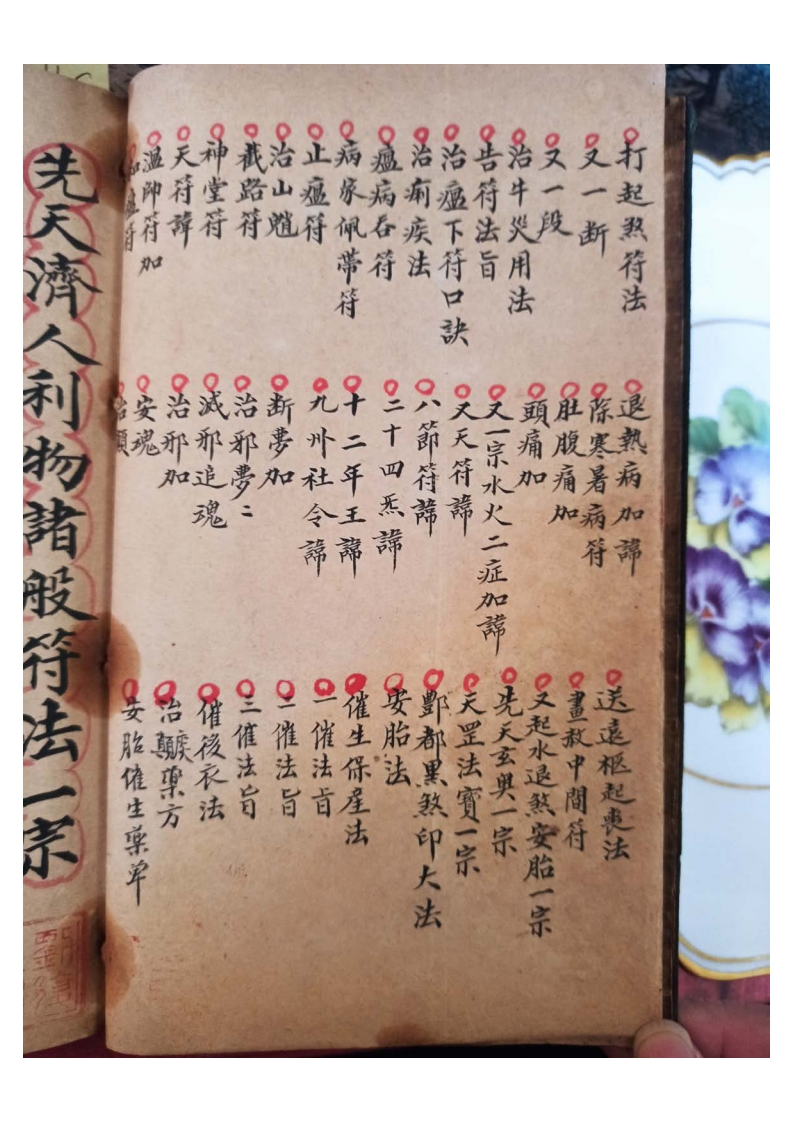 打起煞符法
又一断
又一段
治牛災用法
告符法旨
治瘟下符口訣
治痢疾法
瘟病吞符
病家佩帶符
止瘟符
治山魈
截路符
神堂符
天符諱
溫帥符加
和瘟符
退熱病加諱
除寒暑病符
肚腹痛加
頭痛加
又一宗水火二症加諱
又天符諱
八節符諱
二十四炁諱
十二年王諱
九州社令諱
断夢加
治邪夢二
滅邪追魂
治邪加
安魂
治顛
送遠柩起喪法
畫赦中間符
又起水退煞安胎一宗
先天玄奥一宗
天罡法寶一宗
酆都黑煞印大法
安胎法
催生保産法
一催法旨
二催法旨
三催法旨
催後衣法
治顛藥方
安胎催生藥单
先天濟人利物諸般符法一宗